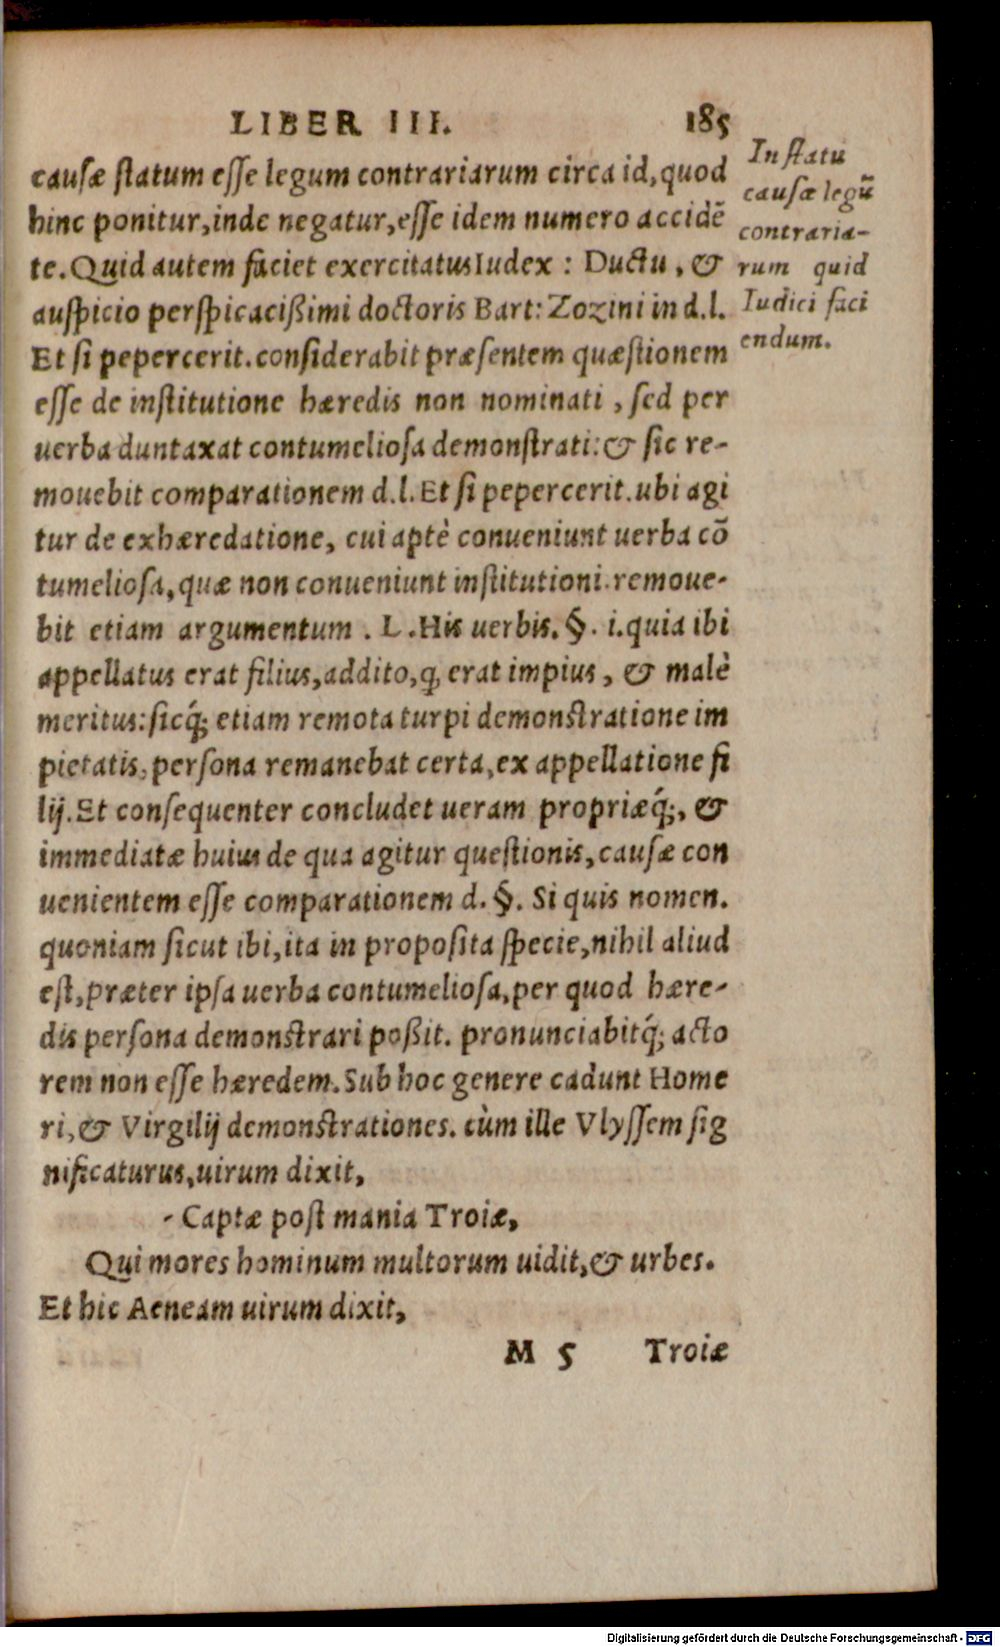 LIBER III. 185
cauſæ ſtatum eſſe legum contrariarum circa id, quod
hinc ponitur, inde negatur, eſſe idem numero accidē
te. Quid autem faciet exercitatus Iudex : Ductu, &
auſpicio perſpicacißimi doctoris Bart: Zozini in d.l.
Et ſi pepercerit. conſiderabit præſentem quæſtionem
eſſe de inſtitutione hæredis non nominati, ſed per
uerba duntaxat contumelioſa demonſtrati: & ſic re-
mouebit comparationem d.l. Et ſi pepercerit. ubi agi
tur de exhæredatione, cui aptè conueniunt uerba cō
tumelioſa, quæ non conueniunt inſtitutioni. remoue-
bit etiam argumentum. L. His uerbis. §. i. quia ibi
appellatus erat filius, addito, ꝙ erat impius, & malè
meritus: ſicq́; etiam remota turpi demonſtratione im
pietatis, perſona remanebat certa, ex appellatione fi
lij. Et conſequenter concludet ueram propriæq́;, &
immediatæ huius de qua agitur queſtionis, cauſæ con
uenientem eſſe comparationem d. §. Si quis nomen.
quoniam ſicut ibi, ita in propoſita ſpecie, nihil aliud
eſt, præter ipſa uerba contumelioſa, per quod hære-
dis perſona demonſtrari poßit. pronunciabitq́; acto
rem non eſſe hæredem. Sub hoc genere cadunt Home
ri, & Virgilij demonſtrationes. cùm ille Vlyſſem ſig
nificaturus, uirum dixit,
- Captæ poſt mænia Troiæ,
Qui mores hominum multorum uidit, & urbes.
Et hic Aeneam uirum dixit,
M 5 Troiæ
In ſtatu
cauſæ legū
contraria-
rum quid
Iudici faci
endum.
Digitalisierung gefördert durch die Deutsche Forschungsgemeinschaft - DFG